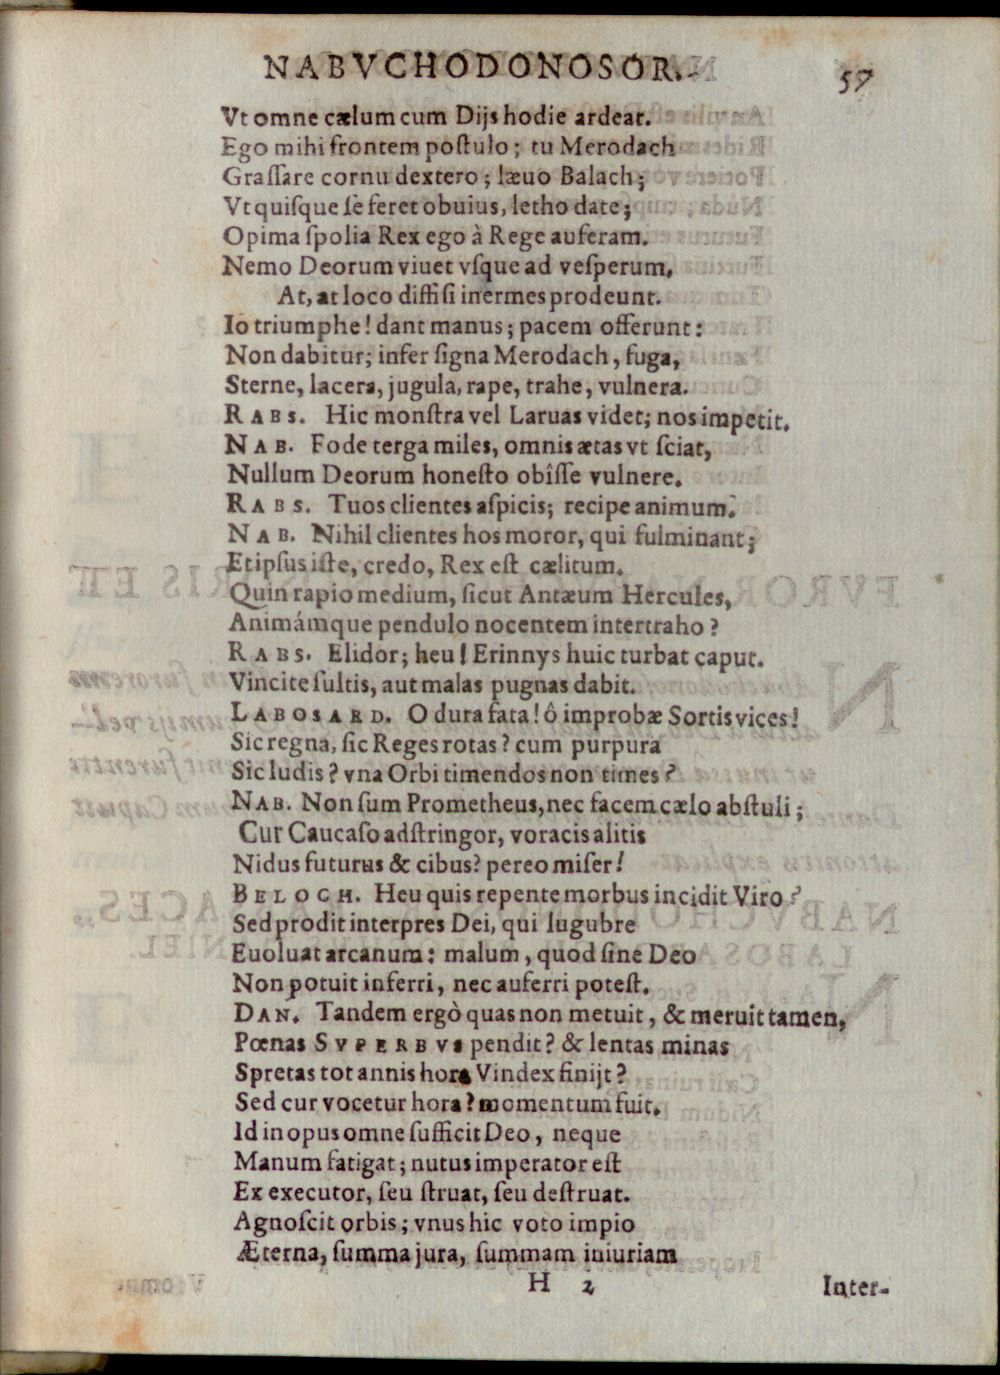 NABVCHODONOSOR. 59
Vt omne cælum cum Dijs hodie ardeat.
Ego mihi frontem poſtulo; tu Merodach
Graſſare cornu dextero; læuo Balach;
Vt quiſque ſe feret obuius, letho date;
Opima ſpolia Rex ego à Rege auferam.
Nemo Deorum viuet vſque ad veſperum,
At, at loco diffiſi inermes prodeunt.
Io triumphe! dant manus; pacem offerunt:
Non dabitur; infer ſigna Merodach, fuga,
Sterne, lacera, jugula, rape, trahe, vulnera.
RABS. Hic monſtra vel Laruas videt; nos impetit.
NAB. Fode terga miles, omnis ætas vt ſciat,
Nullum Deorum honeſto obîſſe vulnere.
RABS. Tuos clientes aſpicis; recipe animum.
NAB. Nihil clientes hos moror, qui fulminant;
Et ipſus iſte, credo, Rex eſt cælitum.
Quin rapio medium, ſicut Antæum Hercules,
Animámque pendulo nocentem intertraho?
RABS. Elidor; heu! Erinnys huic turbat caput.
Vincite ſultis, aut malas pugnas dabit.
LABOSARD. O dura fata! ô improbæ Sortis vices!
Sic regna, ſic Reges rotas? cum purpura
Sic ludis? vna Orbi timendos non times?
NAB. Non ſum Prometheus, nec facem cælo abſtuli;
Cur Caucaſo adſtringor, voracis alitis
Nidus futurus & cibus? pereo miſer!
BELOCH. Heu quis repente morbus incidit Viro?
Sed prodit interpres Dei, qui lugubre
Euoluat arcanum: malum, quod ſine Deo
Non potuit inferri, nec auferri poteſt.
DAN. Tandem ergò quas non metuit, & meruit tamen,
Pœnas SVPERBVS pendit? & lentas minas
Spretas tot annis hora Vindex finijt?
Sed cur vocetur hora? momentum fuit.
Id in opus omne ſufficit Deo, neque
Manum fatigat; nutus imperator eſt
Ex executor, ſeu ſtruat, ſeu deſtruat.
Agnoſcit orbis; vnus hic voto impio
Æterna, ſumma jura, ſummam iniuriam
H 2 Inter-